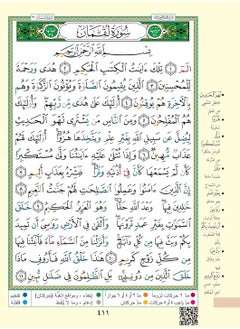 سُورَةُ لُقْمَان
بِسْمِ اللَّهِ الرَّحْمَٰنِ الرَّحِيمِ
الٓمٓ ١ تِلْكَ ءَايَٰتُ الْكِتَٰبِ الْحَكِيمِ ٢ هُدًى وَرَحْمَةً
لِّلْمُحْسِنِينَ ٣ الَّذِينَ يُقِيمُونَ الصَّلَوٰةَ وَيُؤْتُونَ الزَّكَوٰةَ وَهُم
بِالْأَخِرَةِ هُمْ يُوقِنُونَ ٤ أُو۟لَٰٓئِكَ عَلَىٰ هُدًى مِّن رَّبِّهِمْ وَأُو۟لَٰٓئِكَ
هُمُ الْمُفْلِحُونَ ٥ وَمِنَ النَّاسِ مَن يَشْتَرِى لَهْوَ الْحَدِيثِ
لِيُضِلَّ عَن سَبِيلِ اللَّهِ بِغَيْرِ عِلْمٍ وَيَتَّخِذَهَا هُزُوًا أُو۟لَٰٓئِكَ لَهُمْ
عَذَابٌ مُّهِينٌ ٦ وَإِذَا تُتْلَىٰ عَلَيْهِ ءَايَٰتُنَا وَلَّىٰ مُسْتَكْبِرًا
كَأَن لَّمْ يَسْمَعْهَا كَأَنَّ فِىٓ أُذُنَيْهِ وَقْرًا فَبَشِّرْهُ بِعَذَابٍ أَلِيمٍ ٧
إِنَّ الَّذِينَ ءَامَنُوا۟ وَعَمِلُوا۟ الصَّٰلِحَٰتِ لَهُمْ جَنَّٰتُ النَّعِيمِ ٨
خَٰلِدِينَ فِيهَا وَعْدَ اللَّهِ حَقًّا وَهُوَ الْعَزِيزُ الْحَكِيمُ ٩ خَلَقَ
السَّمَٰوَٰتِ بِغَيْرِ عَمَدٍ تَرَوْنَهَا وَأَلْقَىٰ فِى الْأَرْضِ رَوَٰسِىَ أَن تَمِيدَ
بِكُمْ وَبَثَّ فِيهَا مِن كُلِّ دَآبَّةٍ وَأَنزَلْنَا مِنَ السَّمَآءِ مَآءً فَأَنۢبَتْنَا فِيهَا
مِن كُلِّ زَوْجٍ كَرِيمٍ ١٠ هَٰذَا خَلْقُ اللَّهِ فَأَرُونِى مَاذَا
خَلَقَ الَّذِينَ مِن دُونِهِ بَلِ الظَّٰلِمُونَ فِى ضَلَٰلٍ مُّبِينٍ ١١
٤١١